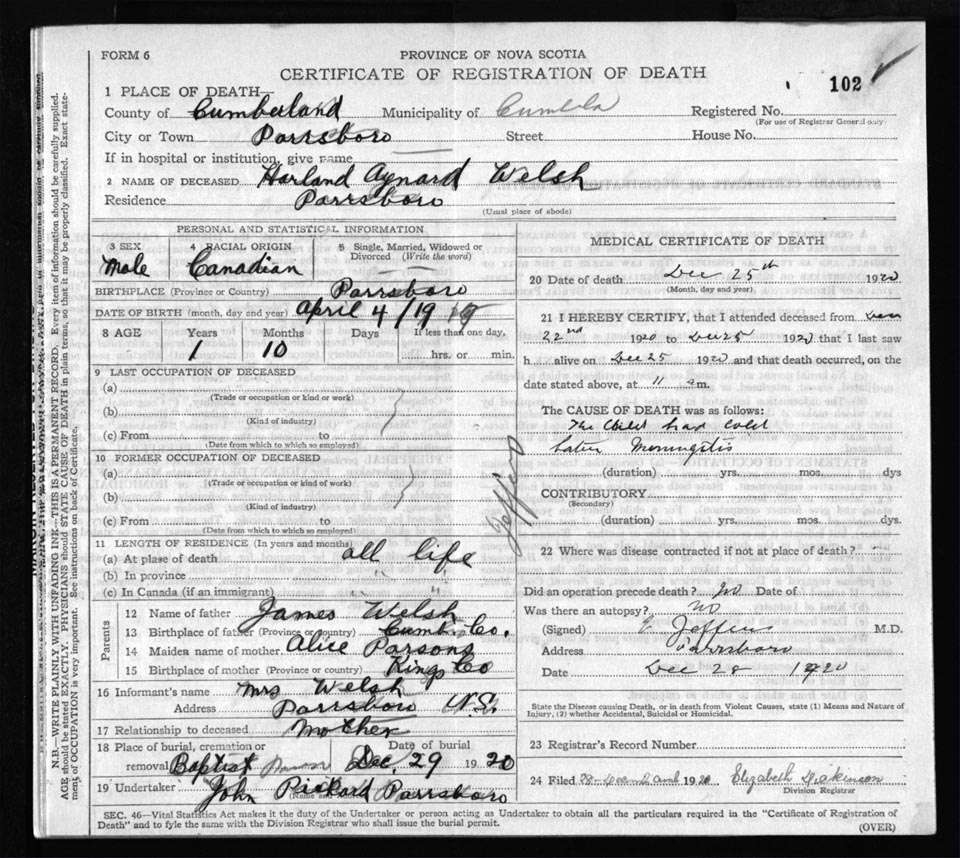 FORM 6
PROVINCE OF NOVA SCOTIA
CERTIFICATE OF REGISTRATION OF DEATH
102
1 PLACE OF DEATH—
County of Cumberland Municipality of Registered No.
(For use of Registrar General only)
City or Town Parrsboro Street House No.
If in hospital or institution, give name
2 NAME OF DECEASED Harland Aynard Welsh
Residence Parrsboro
(Usual place of abode)
PERSONAL AND STATISTICAL INFORMATION
3 SEX 4 RACIAL ORIGIN 5 Single, Married, Widowed or
Divorced (Write the word)
Male Canadian
BIRTHPLACE (Province or Country) Parrsboro
DATE OF BIRTH (month, day and year) April 4/19 19
8 AGE Years Months Days If less than one day,
1 10 hrs. or min.
9 LAST OCCUPATION OF DECEASED
(a)
(Trade or occupation or kind or work)
(b)
(Kind of industry)
(c) From to
(Date from which to which so employed)
10 FORMER OCCUPATION OF DECEASED
(a)
(Trade or occupation or kind of work)
(b)
(Kind of industry)
(c) From to
(Date from which to which so employed)
11 LENGTH OF RESIDENCE (In years and months)
(a) At place of death all life
(b) In province " "
(c) In Canada (if an immigrant) " "
Parents
12 Name of father James Welsh
13 Birthplace of father (Province or country) Cumb. Co.
14 Maiden name of mother Alice Parsons
15 Birthplace of mother (Province or country) Kings Co
16 Informant's name Mrs Welsh
Address Parrsboro N.S.
17 Relationship to deceased Mother
18 Place of burial, cremation or Date of burial
removal Baptist Dec. 29 1920
19 Undertaker John Pickard Parrsboro
MEDICAL CERTIFICATE OF DEATH
20 Date of death Dec 25th 1920
(Month, day and year)
21 I HEREBY CERTIFY, that I attended deceased from Dec
22nd 1920 to Dec 25 1920 that I last saw
h alive on Dec 25 1920 and that death occurred, on the
date stated above, at 11 a m.
The CAUSE OF DEATH was as follows:
The Child had cold
later Meningitis
(duration) yrs. mos. dys
CONTRIBUTORY
(Secondary)
(duration) yrs. mos. dys.
22 Where was disease contracted if not at place of death?
Did an operation precede death? No Date of
Was there an autopsy? No
(Signed) M.D.
Address Parrsboro
Date Dec 28 1920
State the Disease causing Death, or in death from Violent Causes, state (1) Means and Nature of
Injury, (2) whether Accidental, Suicidal or Homicidal.
23 Registrar's Record Number
24 Filed 28 1920 Elizabeth Dickinson
Division Registrar
SEC. 46—Vital Statistics Act makes it the duty of the Undertaker or person acting as Undertaker to obtain all the particulars required in the "Certificate of Registration of
Death" and to fyle the same with the Division Registrar who shall issue the burial permit.
(OVER)
N.B.—WRITE PLAINLY WITH UNFADING INK—THIS IS A PERMANENT RECORD. Every item of information should be carefully supplied.
AGE should be stated EXACTLY. PHYSICIANS should STATE CAUSE OF DEATH in plain terms, so that it may be properly classified. Exact state-
ment of OCCUPATION is very important. See instructions on back of Certificate.